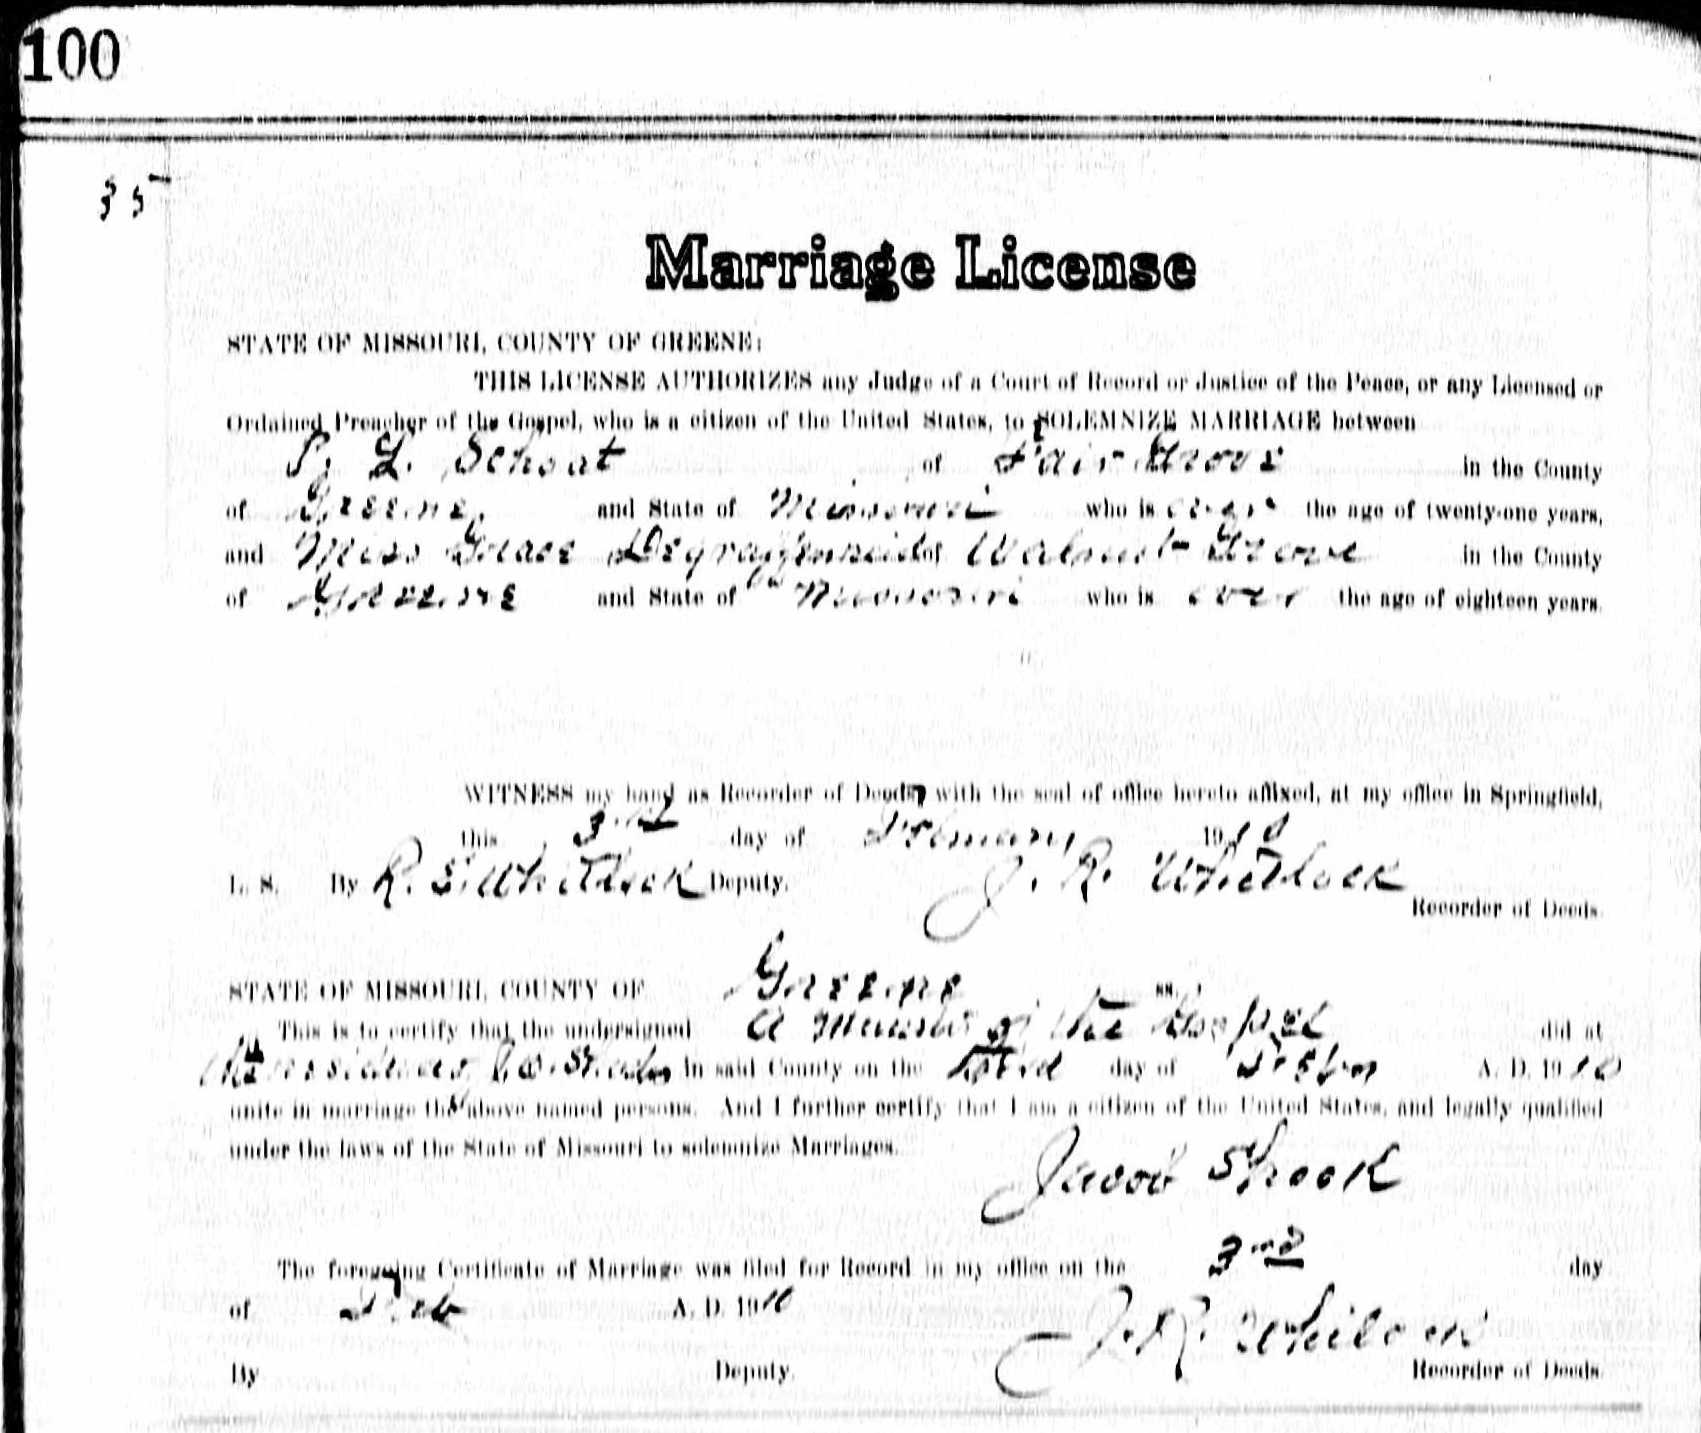 100
35
Marriage License
STATE OF MISSOURI, COUNTY OF GREENE:
THIS LICENSE AUTHORIZES any Judge of a Court of Record or Justice of the Peace, or any Licensed or
Ordained Preacher of the Gospel, who is a citizen of the United States, to SOLEMNIZE MARRIAGE between
L. Schoat of Fair Grove in the County
of Greene and State of Missouri who is over the age of twenty-one years,
and Miss Grace Degraffenreid of Walnut Grove in the County
of Greene and State of Missouri who is over the age of eighteen years.
WITNESS my hand as Recorder of Deeds, with the seal of office hereto affixed, at my office in Springfield,
this 3rd day of February 1910
L. S. By R. E. Whitlock Deputy. J. R. Whitlock
Recorder of Deeds.
STATE OF MISSOURI, COUNTY OF Greene ss.
This is to certify that the undersigned a Minister of the Gospel did at
the residence in said County on the day of A. D. 1910
unite in marriage the above named persons. And I further certify that I am a citizen of the United States, and legally qualified
under the laws of the State of Missouri to solemnize Marriages.
Jacob Shook
The foregoing Certificate of Marriage was filed for Record in my office on the 3rd day
of Feb A. D. 1910
J. R. Whitlock
By Deputy. Recorder of Deeds.